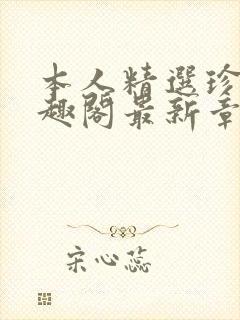 本人精選珍
趣閣最新章
宋心蕊